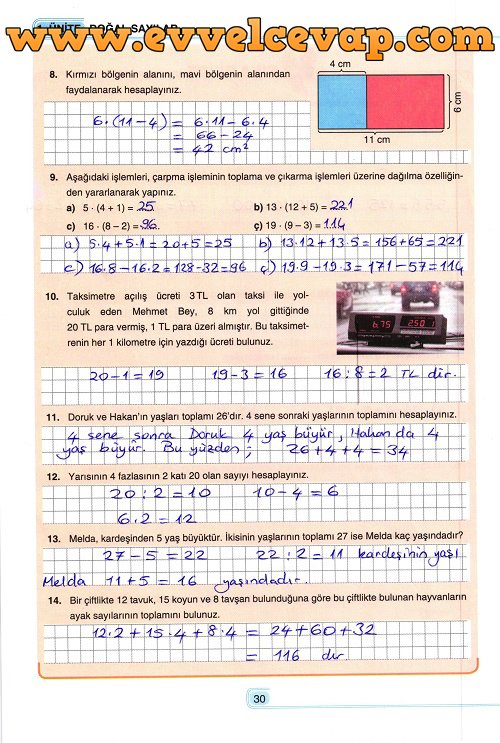 1. ÜNİTE DOĞAL SAYILAR
www.evvelcevap.com
8. Kırmızı bölgenin alanını, mavi bölgenin alanından
faydalanarak hesaplayınız.
4 cm
6 cm
11 cm
6.(11-4) = 6.11-6.4
= 66-24
= 42 cm²
9. Aşağıdaki işlemleri, çarpma işleminin toplama ve çıkarma işlemleri üzerine dağılma özelliğin-
den yararlanarak yapınız.
a) 5 · (4 + 1) = 25 b) 13 · (12 + 5) = 221
c) 16 · (8 – 2) = 96 ç) 19 · (9 – 3) = 114
a) 5.4+5.1=20+5=25 b) 13.12+13.5=156+65=221
c) 16.8-16.2=128-32=96 ç) 19.9-19.3=171-57=114
10. Taksimetre açılış ücreti 3 TL olan taksi ile yol-
culuk eden Mehmet Bey, 8 km yol gittiğinde
20 TL para vermiş, 1 TL para üzeri almıştır. Bu taksimet-
renin her 1 kilometre için yazdığı ücreti bulunuz.
6.75 250 1
20-1=19 19-3=16 16:8=2 TL dir.
11. Doruk ve Hakan'ın yaşları toplamı 26'dır. 4 sene sonraki yaşlarının toplamını hesaplayınız.
4 sene sonra Doruk 4 yaş büyür, Hakan da 4
yaş büyür. Bu yüzden; 26+4+4=34
12. Yarısının 4 fazlasının 2 katı 20 olan sayıyı hesaplayınız.
20:2=10 10-4=6
6.2=12
13. Melda, kardeşinden 5 yaş büyüktür. İkisinin yaşlarının toplamı 27 ise Melda kaç yaşındadır?
27-5=22 22:2=11 kardeşinin yaşı
Melda 11+5=16 yaşındadır.
14. Bir çiftlikte 12 tavuk, 15 koyun ve 8 tavşan bulunduğuna göre bu çiftlikte bulunan hayvanların
ayak sayılarının toplamını bulunuz.
12.2+15.4+8.4 = 24+60+32
= 116 dır.
30